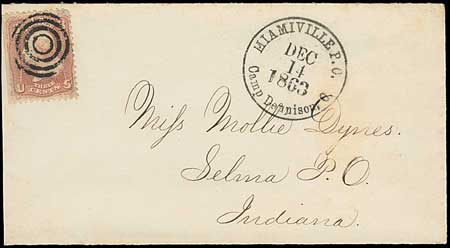 MIAMIVILLE P.O.
DEC
14
1863
Camp Dennison, O
THREE
CENTS
U S
Miss Mollie Dynes.
Selma P.O.
Indiana.